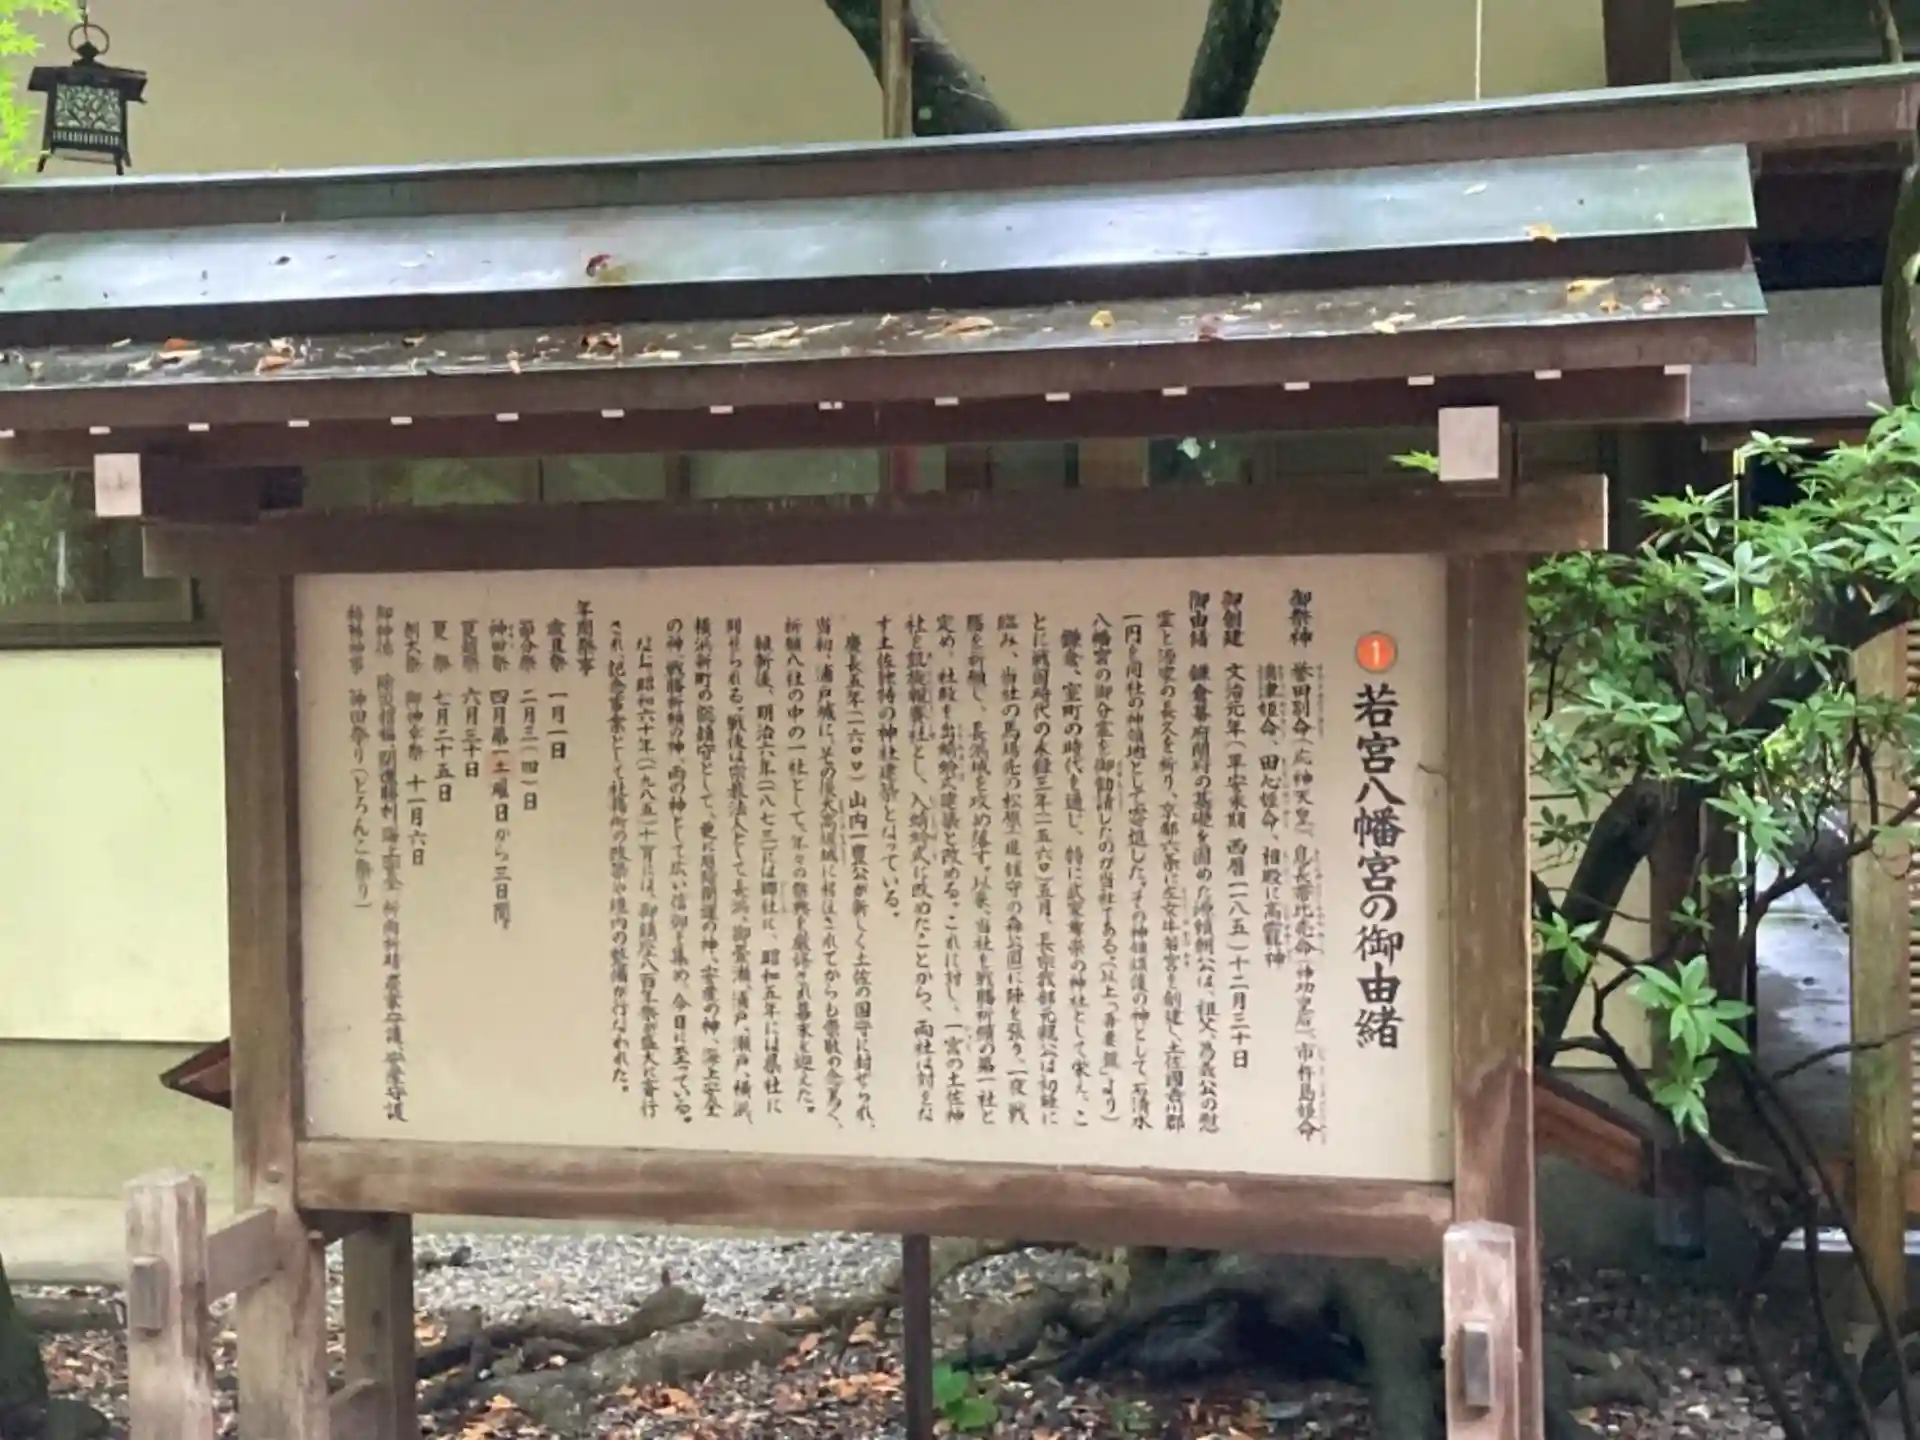 1 若宮八幡宮の御由緒
御祭神 誉田別命(応神天皇)、息長帯比売命(神功皇后)、市杵島姫命
湍津姫命、田心姫命、相殿に高龗神
御創建 文治元年(平安末期 西暦一一八五)十二月三十日
御由緒 鎌倉幕府開府の基礎を固めた源頼朝公は、祖父、為義公の慰
霊と源家の長久を祈り、京都六条に左女牛若宮を創建し土佐國吾川郡
一円を同社の神領地として寄進した。その神領鎮護の神として、石清水
八幡宮の御分霊を御勧請したのが当社である。(以上「吾妻鏡」より)
鎌倉、室町の時代を通し、特に武家尊崇の神社として栄え、こ
とに戦国時代の永録三年(一五六〇)五月、長宗我部元親公は初陣に
臨み、当社の馬場先の松原(現鎮守の森公園)に陣を張り、一夜戦
勝を祈願し、長浜城を攻め落す。以来、当社を戦勝祈願の第一社と
定め、社殿を出蜻蛉式建築と改める。これに対し、一宮の土佐神
社を凱旋報賽社とし、入蜻蛉式に改めたことから、両社は対をな
す土佐独特の神社建築となっている。
慶長五年(一六〇〇)山内一豊公が新しく土佐の国守に封ぜられ、
当初、浦戸城に、その後大高坂城に移住されてからも崇敬の念篤く、
祈願八社の中の一社として、年々の祭典を厳修され幕末を迎えた。
維新後、明治六年(一八七三)には郷社に、昭和五年には県社に
列せられる。戦後は宗教法人として長浜、御畳瀬、浦戸、瀬戸、横浜、
横浜新町の総鎮守として、更に厄除開運の神、安産の神、海上安全
の神、戦勝祈願の神、雨の神として広い信仰を集め、今日に至っている。
なお、昭和六十年(一九八五)十一月には、御鎮座八百年祭が盛大に斎行
され、記念事業として社務所の改築や境内の整備が行なわれた。
年間祭事
歳旦祭 一月一日
節分祭 二月三(四)日
神田祭 四月第一土曜日から三日間
夏越祭 六月三十日
夏祭 七月二十五日
例大祭 御神幸祭 十一月六日
御神徳 除災招福、開運勝利、海上安全 祈雨祈晴 農家守護、安産守護
特殊神事 神田祭り(どろんこ祭り)